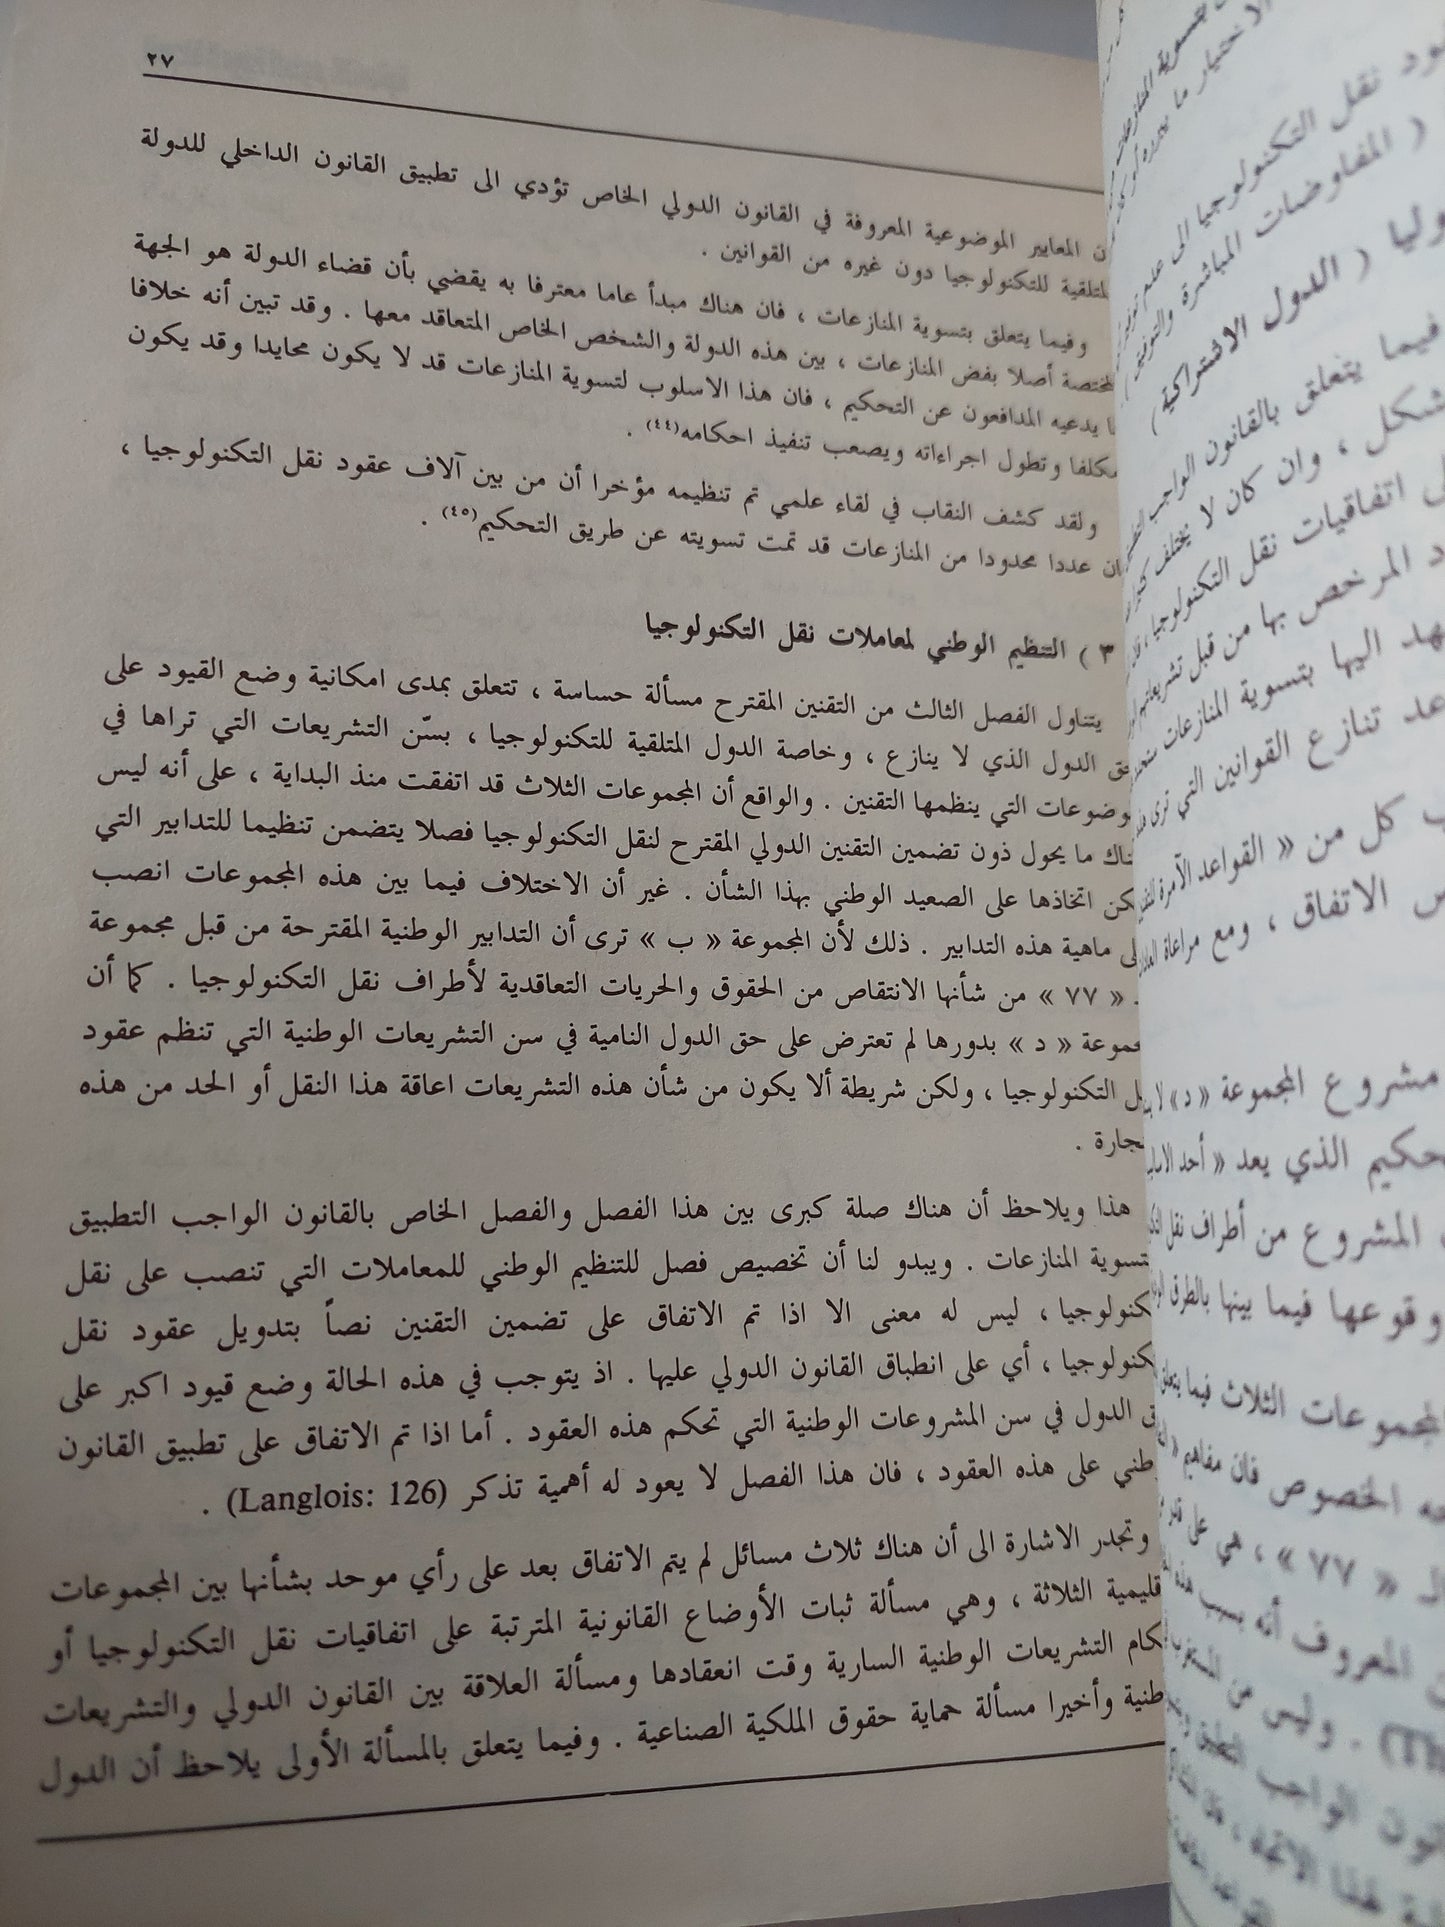 ٢٧
المعايير الموضوعية المعروفة في القانون الدولي الخاص تؤدي الى تطبيق القانون الداخلي للدولة
للتكنولوجيا دون غيره من القوانين .
وفيما يتعلق بتسوية المنازعات ، فان هناك مبدأ عاما معترفا به يقضي بأن قضاء الدولة هو الجهة
أصلا بفض المنازعات ، بين هذه الدولة والشخص الخاص المتعاقد معها . وقد تبين أنه خلافا
يدعيه المدافعون عن التحكيم ، فان هذا الاسلوب لتسوية المنازعات قد لا يكون محايدا وقد يكون
وتطول اجراءاته ويصعب تنفيذ احكامه(٤٤) .
ولقد كشف النقاب في لقاء علمي تم تنظيمه مؤخرا أن من بين آلاف عقود نقل التكنولوجيا ،
عددا محدودا من المنازعات قد تمت تسويته عن طريق التحكيم(٤٥) .
٣ ) التنظيم الوطني لمعاملات نقل التكنولوجيا
يتناول الفصل الثالث من التقنين المقترح مسألة حساسة ، تتعلق بمدى امكانية وضع القيود على
الدول الذي لا ينازع ، وخاصة الدول المتلقية للتكنولوجيا ، بسّن التشريعات التي تراها في
التي ينظمها التقنين . والواقع أن المجموعات الثلاث قد اتفقت منذ البداية ، على أنه ليس
ما يحول ذون تضمين التقنين الدولي المقترح لنقل التكنولوجيا فصلا يتضمن تنظيما للتدابير التي
اتخاذها على الصعيد الوطني بهذا الشأن . غير أن الاختلاف فيما بين هذه المجموعات انصب
ماهية هذه التدابير . ذلك لأن المجموعة « ب » ترى أن التدابير الوطنية المقترحة من قبل مجموعة
« ٧٧ » من شأنها الانتقاص من الحقوق والحريات التعاقدية لأطراف نقل التكنولوجيا . كما أن
« د » بدورها لم تعترض على حق الدول النامية في سن التشريعات الوطنية التي تنظم عقود
التكنولوجيا ، ولكن شريطة ألا يكون من شأن هذه التشريعات اعاقة هذا النقل أو الحد من هذه
.
هذا ويلاحظ أن هناك صلة كبرى بين هذا الفصل والفصل الخاص بالقانون الواجب التطبيق
المنازعات . ويبدو لنا أن تخصيص فصل للتنظيم الوطني للمعاملات التي تنصب على نقل
، ليس له معنى الا اذا تم الاتفاق على تضمين التقنين نصاً بتدويل عقود نقل
، أي على انطباق القانون الدولي عليها . اذ يتوجب في هذه الحالة وضع قيود اكبر على
الدول في سن المشروعات الوطنية التي تحكم هذه العقود . أما اذا تم الاتفاق على تطبيق القانون
على هذه العقود ، فان هذا الفصل لا يعود له أهمية تذكر (Langlois: 126) .
وتجدر الاشارة الى أن هناك ثلاث مسائل لم يتم الاتفاق بعد على رأي موحد بشأنها بين المجموعات
الثلاثة ، وهي مسألة ثبات الأوضاع القانونية المترتبة على اتفاقيات نقل التكنولوجيا أو
التشريعات الوطنية السارية وقت انعقادها ومسألة العلاقة بين القانون الدولي والتشريعات
وأخيرا مسألة حماية حقوق الملكية الصناعية . وفيما يتعلق بالمسألة الأولى يلاحظ أن الدول
نقل التكنولوجيا الى
( المفاوضات المباشرة
( الدول الاشتراكية )
فيما يتعلق بالقانون الواجب
، وان كان لا يختلف
اتفاقيات نقل التكنولوجيا
المرخص بها من قبل
اليها بتسوية المنازعات
تنازع القوانين التي
كل من « القواعد الآمرة
الاتفاق ، ومع مراعاة
مشروع المجموعة « د » لا
الذي يعد « أحد
المشروع من أطراف نقل
وقوعها فيما بينها بالطرق
الثلاث فيما
الخصوص فان مفاهيم
« ٧٧ » ، هي على
المعروف أنه بسبب هذه
. وليس من
الواجب التطبيق